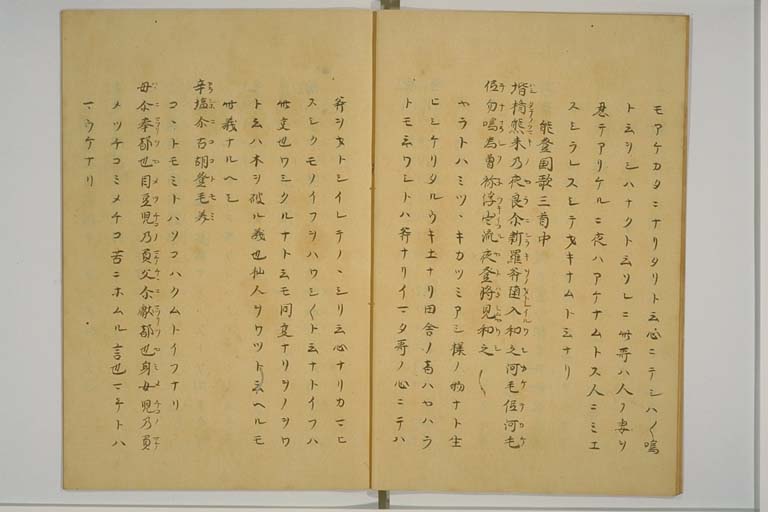 モアケカタニナリタリト云心ニテシハ〱鳴
トヨリシハナクト云ソレニ此哥ハ人ノ妻ヲ
忍テアリケルニ夜ハアケナムトス人ニミエ
スシラレスシテキナムトシナリ
能登国歌三首中
堦楯熊来乃夜良尓新羅斧堕入和之河毛𠈓河毛
𠈓勿鳴為曽祢浮出流夜登将見和之
ヤラトハミツヽキカツミアシ様ノ物ナト生
ヒシケリタルウキ土ナリ田舎ノ者ハヤハラ
トモネワシトハ斧ナリイマタ哥ノ心ニテハ
斧ヲオトシイレテノヽシリ云心ナリカマヒ
スシクモノイフヲハワシ〱ト云ナトイフハ
此定也ワシクルナト云モ同定ナリヲノヲワ
ト云ハ木ヲ破ル義也仙人ヲワツト云ヘルモ
此義ナルヘシ
辛塩尓古胡登毛美
コヽトモミトハソコハクムトイフナリ
母尓奉都也目豆児乃負父尓献都也身女児乃負
メツチコミメチコ苦ニホムル言也マチトハ
マウケナリ